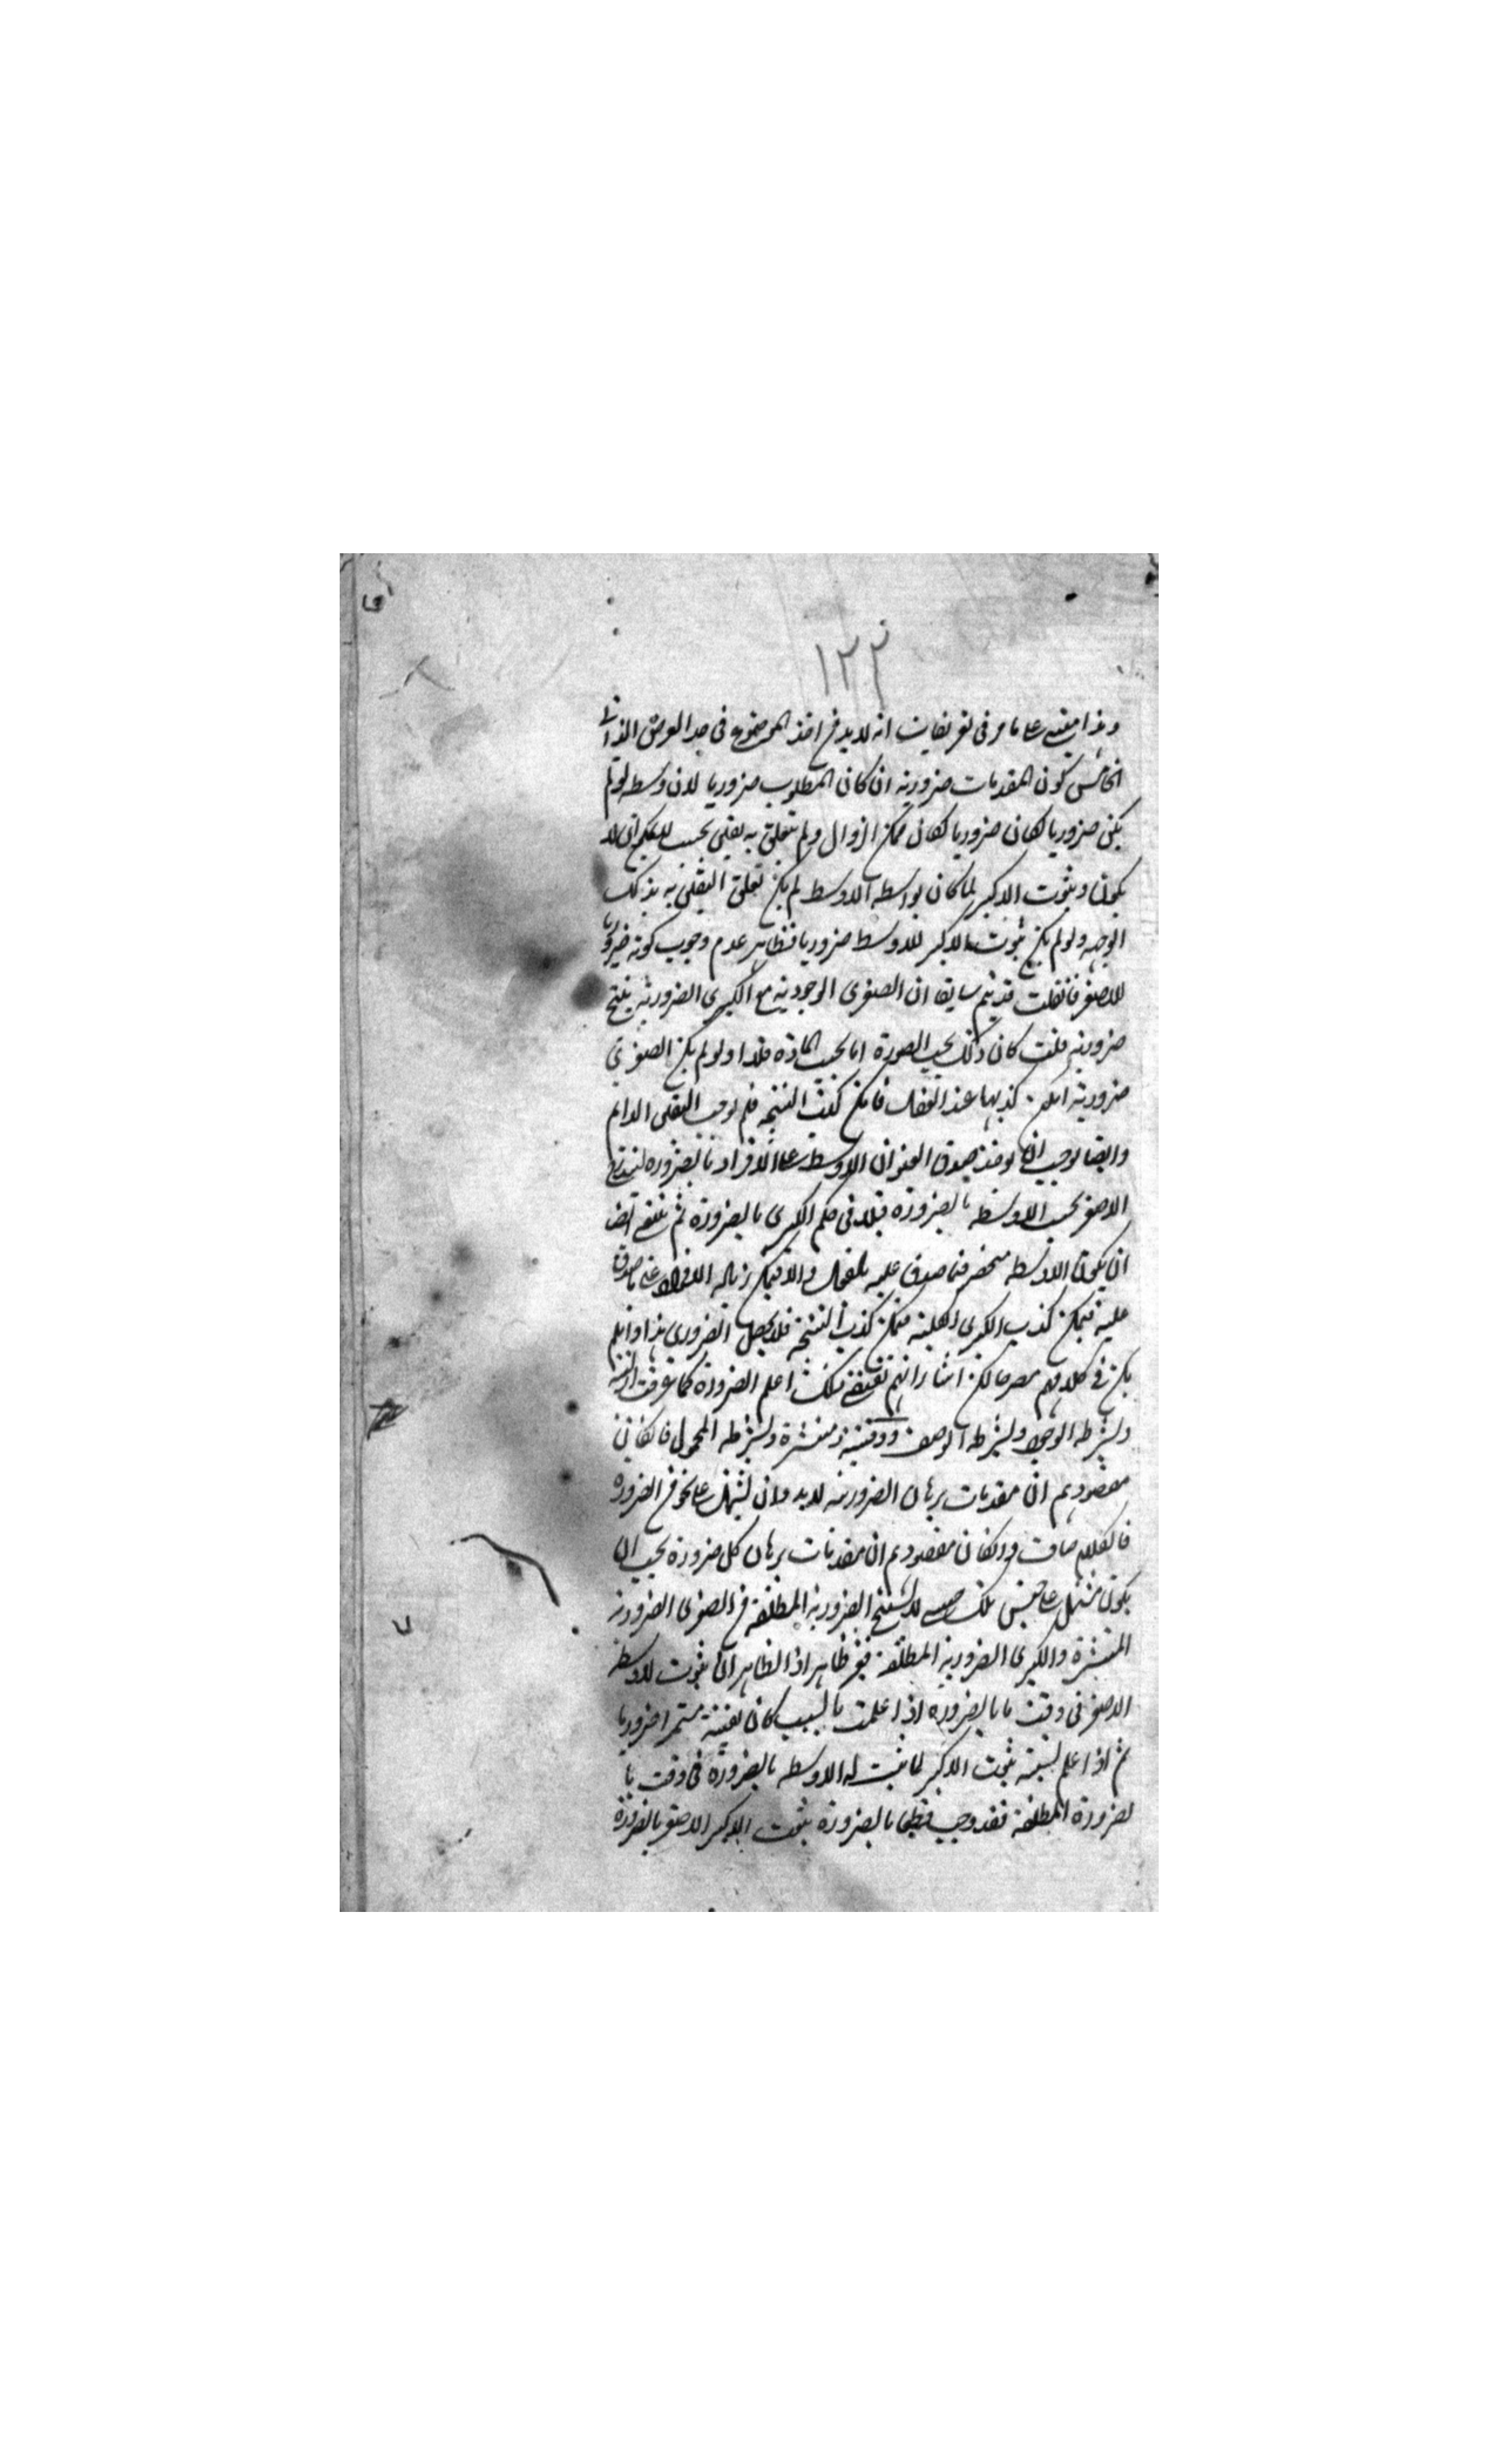 ١٢٢
وهذا مبني على ما مر في تعريفات انه لابد من اخذ الموضوع في حد العرض الذاتي
الخامس كون المقدمات ضرورية ان كان المطلوب ضروريا لان وسطه لو لم
يكن ضروريا لكان ضروريا لكان ممكن الزوال ولم يتعلق به يقين بحسب
يكون وثبوت الاكبر لما كان بواسطة الاوسط لم يكن تعلق اليقين به بذلك
الوجه ولو لم يكن ثبوت الاكبر للاوسط ضروريا فظاهر عدم وجوب كونه ضروريا
للاصغر فان قلت قد سابقا ان الصغرى الوجودية مع الكبرى الضرورية ينتج
ضرورية قلت كان ذلك بحسب الصورة اما بحسب المادة فلا ولو لم يكن الصغرى
ضرورية امكن كذبها عند العقل فامكن كذب النتيجة فلم يوجب اليقين الدائم
وايضا يوجب ان يؤخذ صدق العنوان الاوسط على الافراد بالضرورة ليندرج
الاصغر بحسب الاوسط بالضرورة في حكم الكبرى بالضرورة ثم ينبغي ايضا
ان يكون الاوسط منحصر فيما صدق عليه بالفعل والا فيمكن زياده الافراد على ما صدق
عليه فيمكن كذب الكبرى الكلية فيمكن كذب النتيجة فلا يحصل الضروري هذا وان لم
يكن في كلامهم مصرحا لكن اعلم الضرورة كما عرفت
وبشرط الوجود وبشرط الوصف ووقتية ومنتشرة وبشرط المحمول فان كان
مقصودهم ان مقدمات برهان الضرورية لابد وان يشتمل على نحو من الضرورة
فالكلام صادق وان كان مقصودهم ان مقدمات برهان كل ضرورة يجب ان
يكون مشتمل على جنس تلك حتى لا يستنتج الضرورية المطلقة من الصغرى الضرورية
المنتشرة والكبرى الضرورية المطلقة فغير ظاهر اذ الظاهر ان ثبوت الاوسط
الاصغر في وقت ما بالضرورة اذا علمت بالسبب كان يقينية مستمرا ضروريا
ثم اذا علم بسببه ثبوت الاكبر لما ثبت له الاوسط بالضرورة في وقت ما
لضرورة المطلقة فقد وجب قطعا بالضرورة ثبوت الاكبر الاصغر بالضرورة